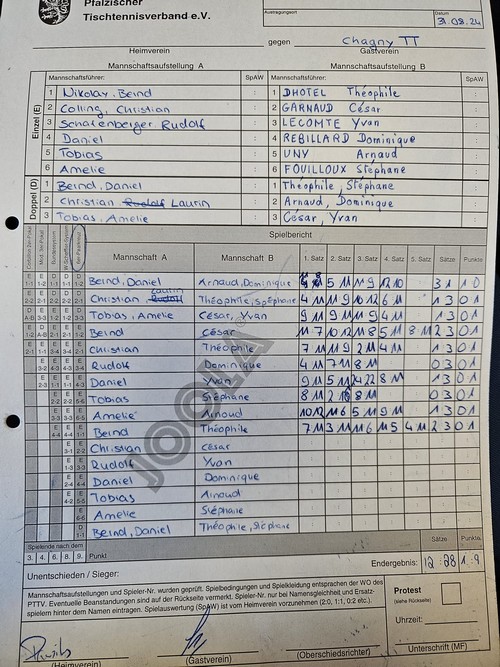 Pfälzischer
Tischtennisverband e.V.
Austragungsort
Datum
31.08.24
gegen Chagny TT
Heimverein Gastverein
Mannschaftsaufstellung A Mannschaftsaufstellung B
Mannschaftsführer: SpAW Mannschaftsführer: SpAW
Einzel (E)
1 Nikolay, Bernd : 1 DHOTEL Théophile :
2 Colling, Christian : 2 GARNAUD César :
3 Scharenberger Rudolf : 3 LECOMTE Yvan :
4 Daniel : 4 REBILLARD Dominique :
5 Tobias : 5 UNY Arnaud :
6 Amelie : 6 FOUILLOUX Stéphane :
Doppel (D)
1 Bernd, Daniel : 1 Théophile, Stéphane :
2 Christian Rudolf Laurin : 2 Arnaud, Dominique :
3 Tobias, Amelie : 3 César, Yvan :
Spielbericht
Mannschaft A Mannschaft B 1. Satz 2. Satz 3. Satz 4. Satz 5. Satz Sätze Punkte
Bernd, Daniel Arnaud, Dominique 5 11 11 9 12 10 3 1 1 0
Christian Rudolf Laurin Théophile, Stéphane 4 11 11 9 10 12 6 11 1 3 0 1
Tobias, Amelie César, Yvan 9 11 9 11 11 9 4 11 1 3 0 1
Bernd César 11 7 10 12 11 8 5 11 8 11 2 3 0 1
Christian Théophile 7 11 11 9 2 11 4 11 1 3 0 1
Rudolf Dominique 4 11 7 11 8 11 0 3 0 1
Daniel Yvan 9 11 5 11 24 22 8 11 1 3 0 1
Tobias Stéphane 8 11 2 11 8 11 0 3 0 1
Amelie Arnoud 10 12 11 6 5 11 9 11 1 3 0 1
Bernd Théophile 7 11 3 11 11 6 11 5 4 11 2 3 0 1
Christian César
Rudolf Yvan
Daniel Dominique
Tobias Arnaud
Amelie Stéphane
Bernd, Daniel Théophile, Stéphane
JOOLA
Spielende nach dem
3. 4. 6. 8. 9. Punkt
Sätze Punkte
Unentschieden / Sieger: Endergebnis: 12 : 28 1 : 9
Mannschaftsaufstellungen und Spieler-Nr. wurden geprüft. Spielbedingungen und Spielkleidung entsprechen der WO des
PTTV. Eventuelle Beanstandungen sind auf der Rückseite vermerkt. Spieler-Nr. nur bei Namensgleichheit und Ersatz-
spielern hinter dem Namen eintragen. Spielauswertung (SpAW) ist vom Heimverein vorzunehmen (2:0, 1:1, 0:2 etc.).
Protest
(siehe Rückseite)
Uhrzeit:
(Heimverein) (Gastverein) (Oberschiedsrichter) Unterschrift (MF)